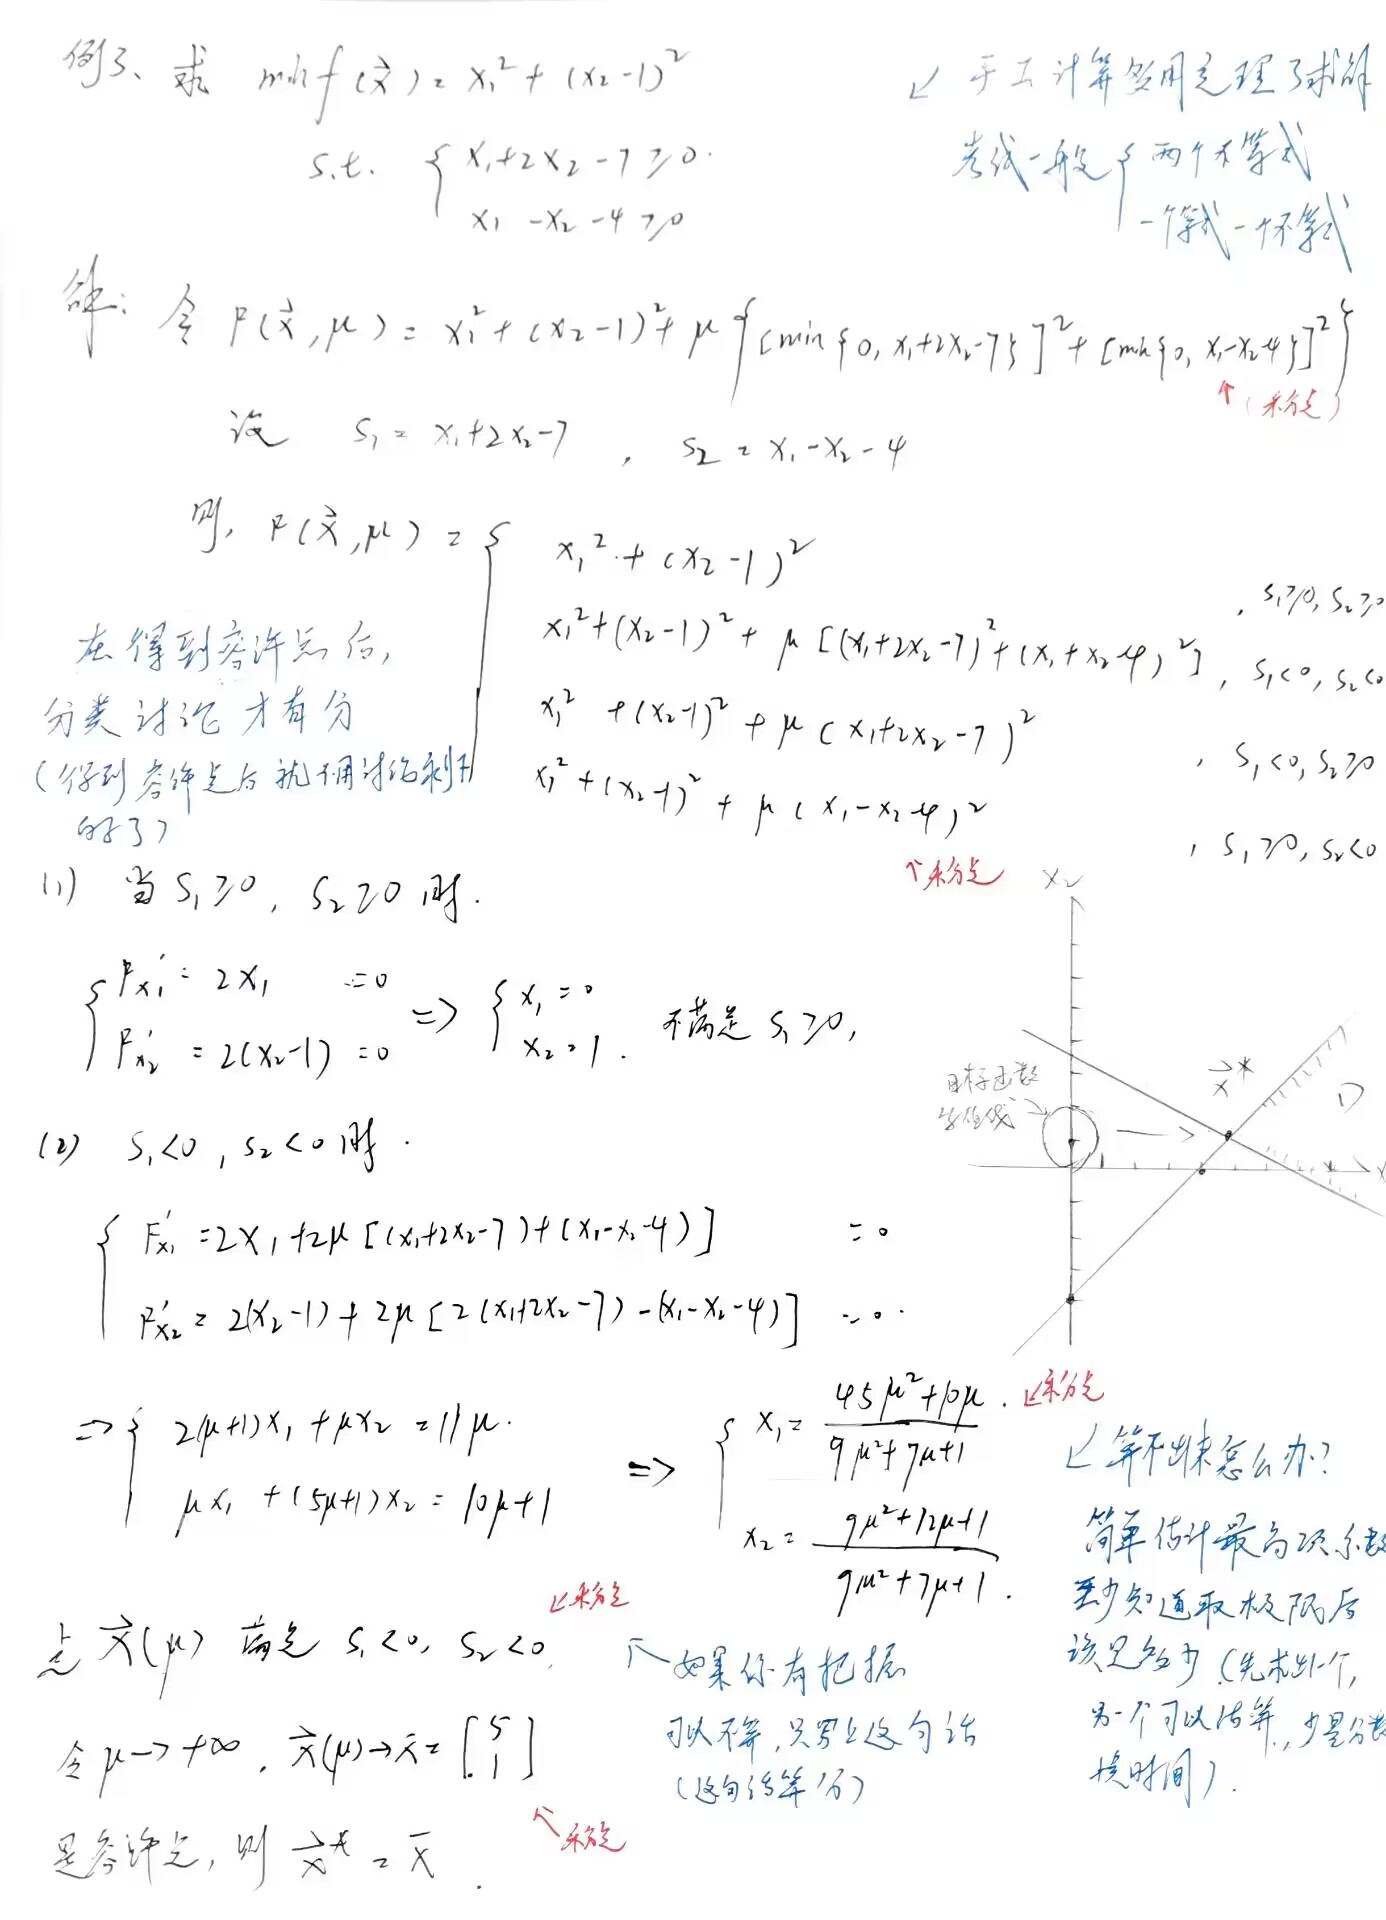 例3、求 min f(x⃗) = x₁² + (x₂-1)²
s.t. { x₁+2x₂-7≥0.
x₁-x₂-4≥0
↙ 手工计算多用定理3求解
考试一般是 { 两个不等式
一个等式一个不等式
解: 令 F(x⃗,μ) = x₁²+(x₂-1)²+μ{[min{0, x₁+2x₂-7}]²+[min{0, x₁-x₂-4}]²}
↑(采分点)
设 s₁ = x₁+2x₂-7 , s₂ = x₁-x₂-4
则, F(x⃗,μ) = {
x₁²+(x₂-1)² , s₁≥0, s₂≥0
x₁²+(x₂-1)²+μ[(x₁+2x₂-7)²+(x₁+x₂-4)²] , s₁<0, s₂<0
x₁²+(x₂-1)²+μ(x₁+2x₂-7)² , s₁<0, s₂≥0
x₁²+(x₂-1)²+μ(x₁-x₂-4)² , s₁≥0, s₂<0
↑采分点
在得到容许点后,
分类讨论才有分
(得到容许点后就不用讨论剩下
的了)
(1) 当 s₁≥0, s₂≥0 时.
{ F′x₁ = 2x₁ =0
F′x₂ = 2(x₂-1) =0
=> { x₁=0
x₂=1. 不满足 s₁≥0,
x₂
目标函数
等值线
x⃗*
D
x
(2) s₁<0, s₂<0 时.
{ F′x₁ = 2x₁+2μ[(x₁+2x₂-7)+(x₁-x₂-4)] =0
F′x₂ = 2(x₂-1)+2μ[2(x₁+2x₂-7)-(x₁-x₂-4)] =0.
=> { (2μ+1)x₁+μx₂=11μ.
μx₁+(5μ+1)x₂=10μ+1
=> { x₁ = (45μ²+10μ)/(9μ²+7μ+1). ↙采分点
x₂ = (9μ²+12μ+1)/(9μ²+7μ+1).
↙算不出来怎么办?
简单估计最高次系数
至少知道取极限后
该是多少(先求出一个,
另一个可以估算,
换时间).
↙采分点
点 x⃗(μ) 满足 s₁<0, s₂<0,
↖如果你有把握
可以不算,只写上这句话
(这句话算1分)
令 μ→+∞, x⃗(μ)→x̄=[5
1]
↖采分点
是容许点, 则 x⃗* = x̄.